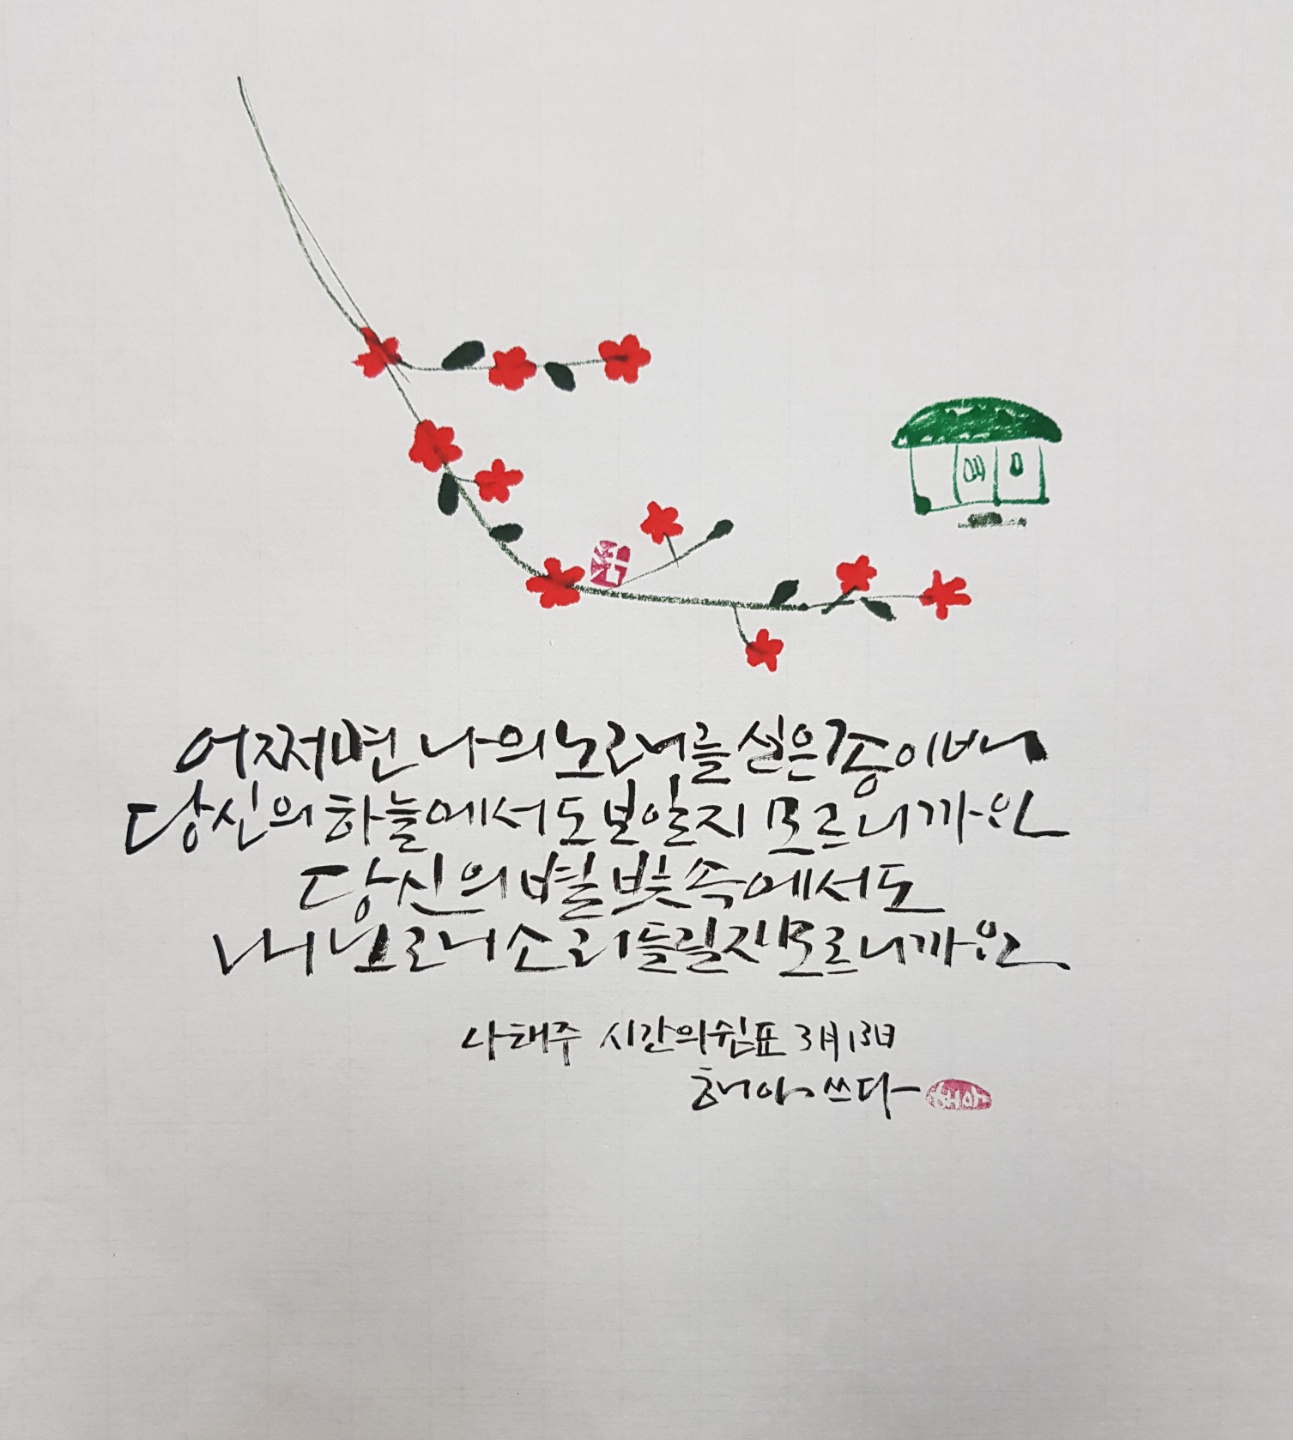 어쩌면 나의 노래를 실은 종이배
당신의 하늘에서도 보일지 모르니까요
당신의 별빛 속에서도
내 노래 소리 들릴지 모르니까요.
나태주 시간의쉼표 3月13日
해아 쓰다
해아